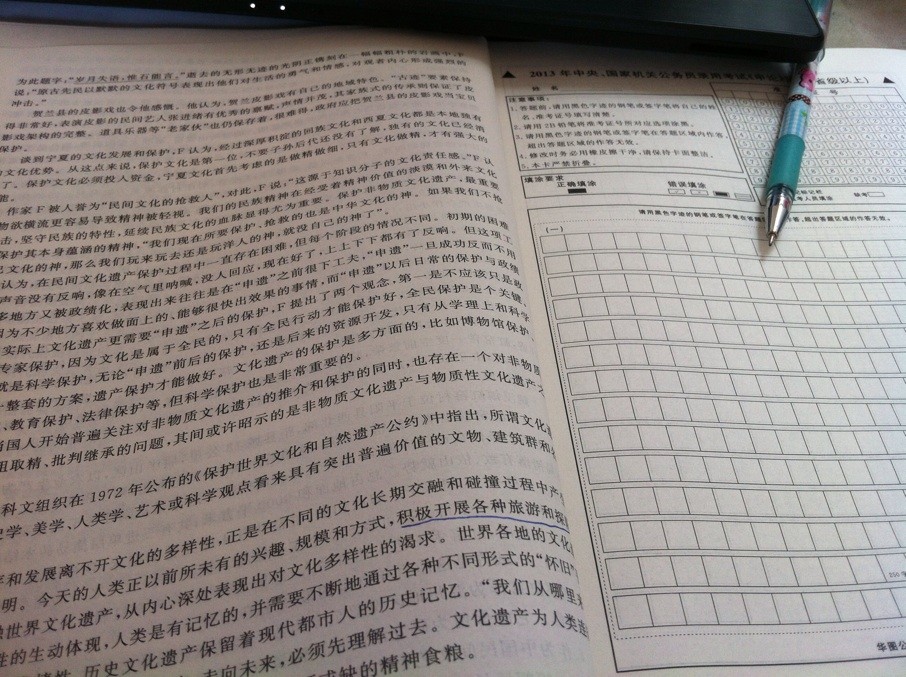 为此题字，“岁月失语、惟石能言。”逝去的无形无迹的光阴正镌刻在一幅幅粗朴的岩画中，
说，“原古先民以默默的文化符号表现出他们对生活的勇气和情感，对观者内心形成强烈的
冲击。”
贺兰县的皮影戏也令他感慨。他认为，贺兰皮影戏有自己的地域特色。“古道”要素保持
得非常好，表演皮影的民间艺人张进绪有优秀的禀赋，声情并茂，其家族式的传承则保证了皮
影戏架构的完整。道具乐器等“老家伙”也仍保存着，很难得，政府应把贺兰县的皮影戏当宝贝
保护。
谈到宁夏的文化发展和保护，F认为，经过深厚积淀的回族文化和西夏文化都是本地独有
的文化优势。从这点来说，保护文化是第一位，不要子孙后代还没有了解，独有的文化已经消
了。保护文化必须投入资金，宁夏文化首先考虑的是做精做细，只有文化做精，才有强大的
能。
作家F被人誉为“民间文化的抢救人”，对此，F说：“这源于知识分子的文化责任感。”F认
物欲横流更容易导致精神被轻视。我们的民族精神在经受着精神价值的淡漠和外来文化
击，坚守民族的特性，延续民族文化的血脉显得尤为重要。保护非物质文化遗产，最重要
保护其本身蕴涵的精神，“我们现在所要保护、抢救的也是中华文化的神。如果我们不抢
己文化的神，那么我们玩来玩去还是玩洋人的神，就没自己的神了”。
认为，在民间文化遗产保护过程中一直存在困难，但每个阶段的情况不同。初期的困难
声音没有反响，像在空气里呐喊，没人回应，现在好了，上上下下都有了反响。但这项工
多地方又被政绩化，表现出来往往是在“申遗”之前很下工夫，“申遗”一旦成功反而不用
因为不少地方喜欢做面上的、能够很快出效果的事情，而“申遗”以后日常的保护与政绩
实际上文化遗产更需要“申遗”之后的保护，F提出了两个观念，第一是不应该只是政
专家保护，因为文化是属于全民的，只有全民行动才能保护好，全民保护是个关键、
就是科学保护，无论“申遗”前后的保护，还是后来的资源开发，只有从学理上和科学
一整套的方案，遗产保护才能做好。文化遗产的保护是多方面的，比如博物馆保护
、教育保护、法律保护等，但科学保护也是非常重要的。
当国人开始普遍关注对非物质文化遗产的推介和保护的同时，也存在一个对非物质
粗取精、批判继承的问题，其间或许昭示的是非物质文化遗产与物质性文化遗产
科文组织在1972年公布的《保护世界文化和自然遗产公约》中指出，所谓文化
史学、美学、人类学、艺术或科学观点看来具有突出普遍价值的文物、建筑群和
和发展离不开文化的多样性，正是在不同的文化长期交融和碰撞过程中产
明。今天的人类正以前所未有的兴趣、规模和方式，积极开展各种旅游和探
世界文化遗产，从内心深处表现出对文化多样性的渴求。世界各地的文化
性的生动体现，人类是有记忆的，并需要不断地通过各种不同形式的“怀旧”
历史文化遗产保留着现代都市人的历史记忆。“我们从哪里来
走向未来，必须先理解过去。文化遗产为人类
缺的精神食粮。
2013年中央、国家机关公务员录用考试
省级以上）
姓名
号
注意事项：
1．答题前，请用黑色字迹的钢笔或签字笔将自己的姓
名、准考证号填写清楚。
2．请用2B铅笔将准考证号所对应选项涂黑。
3．请用黑色字迹的钢笔或签字笔在答题区域内作答，
超出答题区域的作答无效。
4．修改时务必用橡皮擦干净，请保持卡面整洁。
5．本卡严禁折叠。
填涂要求
正确填涂
错误填涂
请用黑色字迹的钢笔或签字笔在答题
，超出答题区域的作答无效。
（一）
华图